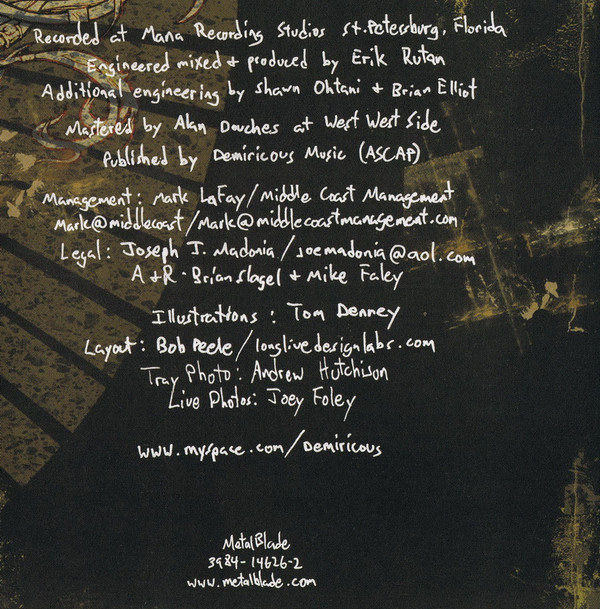 Recorded at Mana Recording Studios St. Petersburg, Florida
Engineered mixed & produced by Erik Rutan
Additional engineering by Shawn Ohtani & Brian Elliot
Mastered by Alan Douches at West West Side
Published by Demiricous Music (ASCAP)
Management: Mark LaFay/Middle Coast Management
Mark@middlecoast/Mark@middlecoastmanagement.com
Legal: Joseph J. Madonia/joemadonia@aol.com
A & R - Brian Slagel & Mike Faley
Illustrations: Tom Denney
Layout: Bob Peele/longlivedesignlabs.com
Tray Photo: Andrew Hutchison
Live Photos: Joey Foley
www.myspace.com/Demiricous
Metal Blade
3984-14626-2
www.metalblade.com